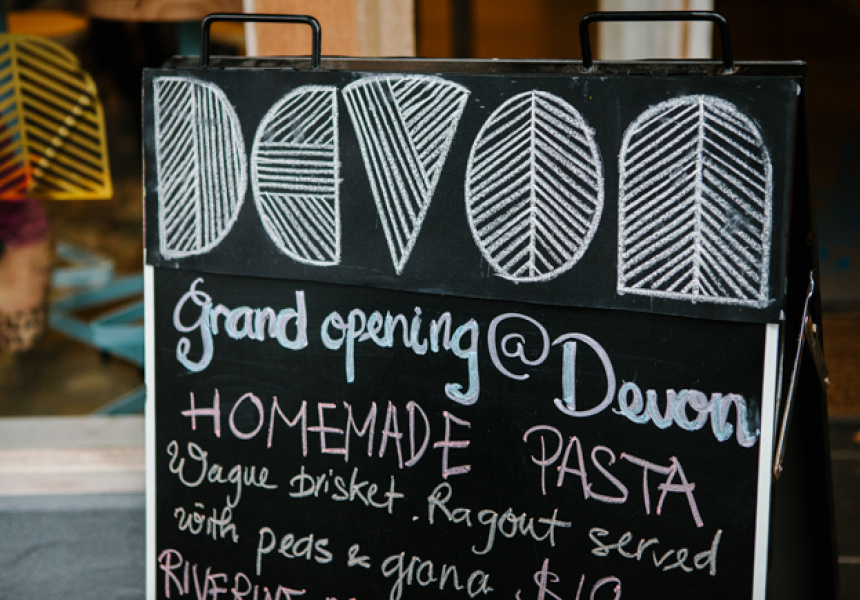 Devon
Grand opening @ Devon
HOMEMADE PASTA
Wague brisket. Ragout served
with peas & grana $19
RIVERINE